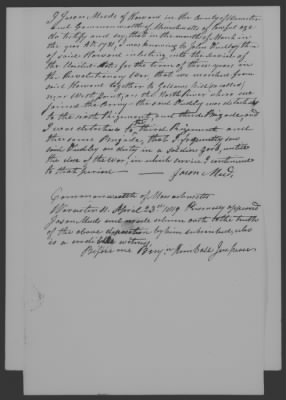 I Jason Mead of Harvard in the County of Worcester
and Commonwealth of Massachusetts of lawful age
do testify and say, that in the month of March in
the year AD 1781, I was knowing to John Priest, then
of said Harvard inlisting into the service of
the United States for the term of three years in
the Revolutionary War, that we marched from
said Harvard together to
near West Point, on the North River where we
joined the Army - the said was attached
to the sixth Regiment, and third Brigade, and
I was attached to the third Regiment and
the same Brigade, that I frequently saw
said on duty in a soldiers garb, untill
the close of the War, in which service I continued
to that period — Jason Mead.
Commonwealth of Massachusetts
Worcester ss. April 23rd 1819 Personally appeared
Jason Mead and made solemn oath to the truth
of the above deposition by him subscribed, who
is a credible witness
Before me Benja Kimball Jus. peace